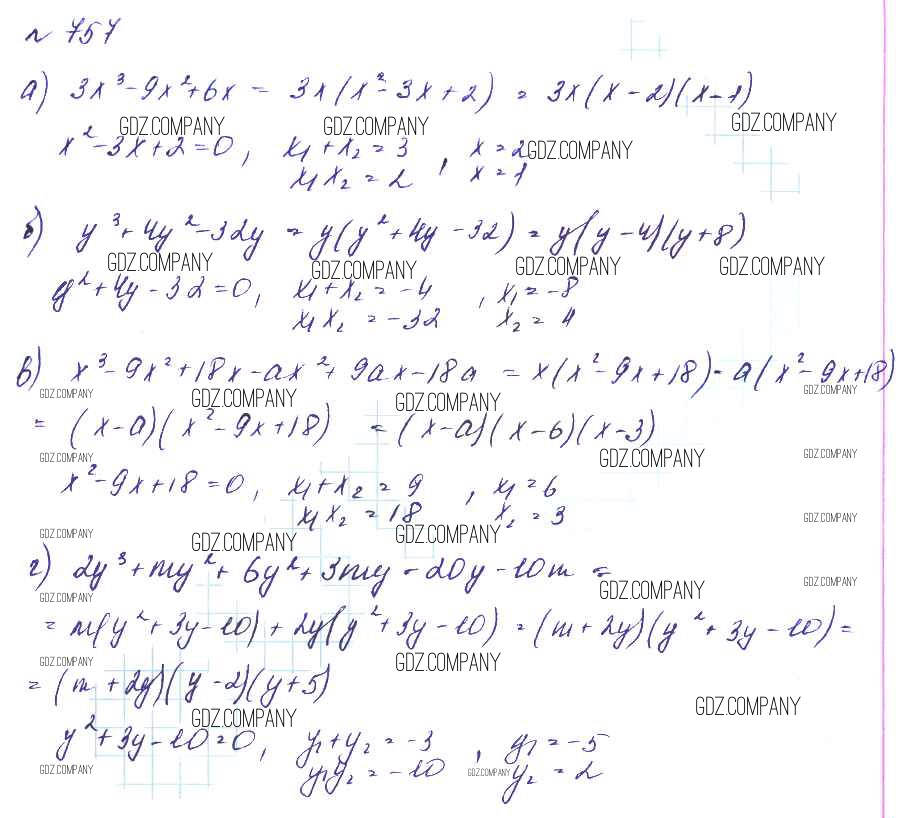 № 757
а) 3x³-9x²+6x = 3x(x²-3x+2) = 3x(x-2)(x-1)
GDZ.COMPANY GDZ.COMPANY GDZ.COMPANY
x²-3x+2=0, x₁+x₂=3, x=2 GDZ.COMPANY
x₁x₂=2 x=1
б) y³+4y²-32y = y(y²+4y-32) = y(y-4)(y+8)
GDZ.COMPANY GDZ.COMPANY GDZ.COMPANY GDZ.COMPANY
y²+4y-32=0, x₁+x₂=-4, x₁=-8
x₁x₂=-32 x₂=4
в) x³-9x²+18x-ax²+9ax-18a = x(x²-9x+18)-a(x²-9x+18)
GDZ.COMPANY GDZ.COMPANY GDZ.COMPANY GDZ.COMPANY
= (x-a)(x²-9x+18) = (x-a)(x-6)(x-3)
GDZ.COMPANY GDZ.COMPANY GDZ.COMPANY
x²-9x+18=0, x₁+x₂=9, x₁=6
x₁x₂=18 x₂=3 GDZ.COMPANY
GDZ.COMPANY GDZ.COMPANY GDZ.COMPANY
г) 2y³+my²+6y²+3my-20y-10m =
GDZ.COMPANY GDZ.COMPANY GDZ.COMPANY
= m(y²+3y-10)+2y(y²+3y-10) = (m+2y)(y²+3y-10) =
GDZ.COMPANY GDZ.COMPANY
= (m+2y)(y-2)(y+5)
GDZ.COMPANY GDZ.COMPANY
y²+3y-10=0, y₁+y₂=-3, y₁=-5
GDZ.COMPANY y₁y₂=-10 GDZ.COMPANY y₂=2